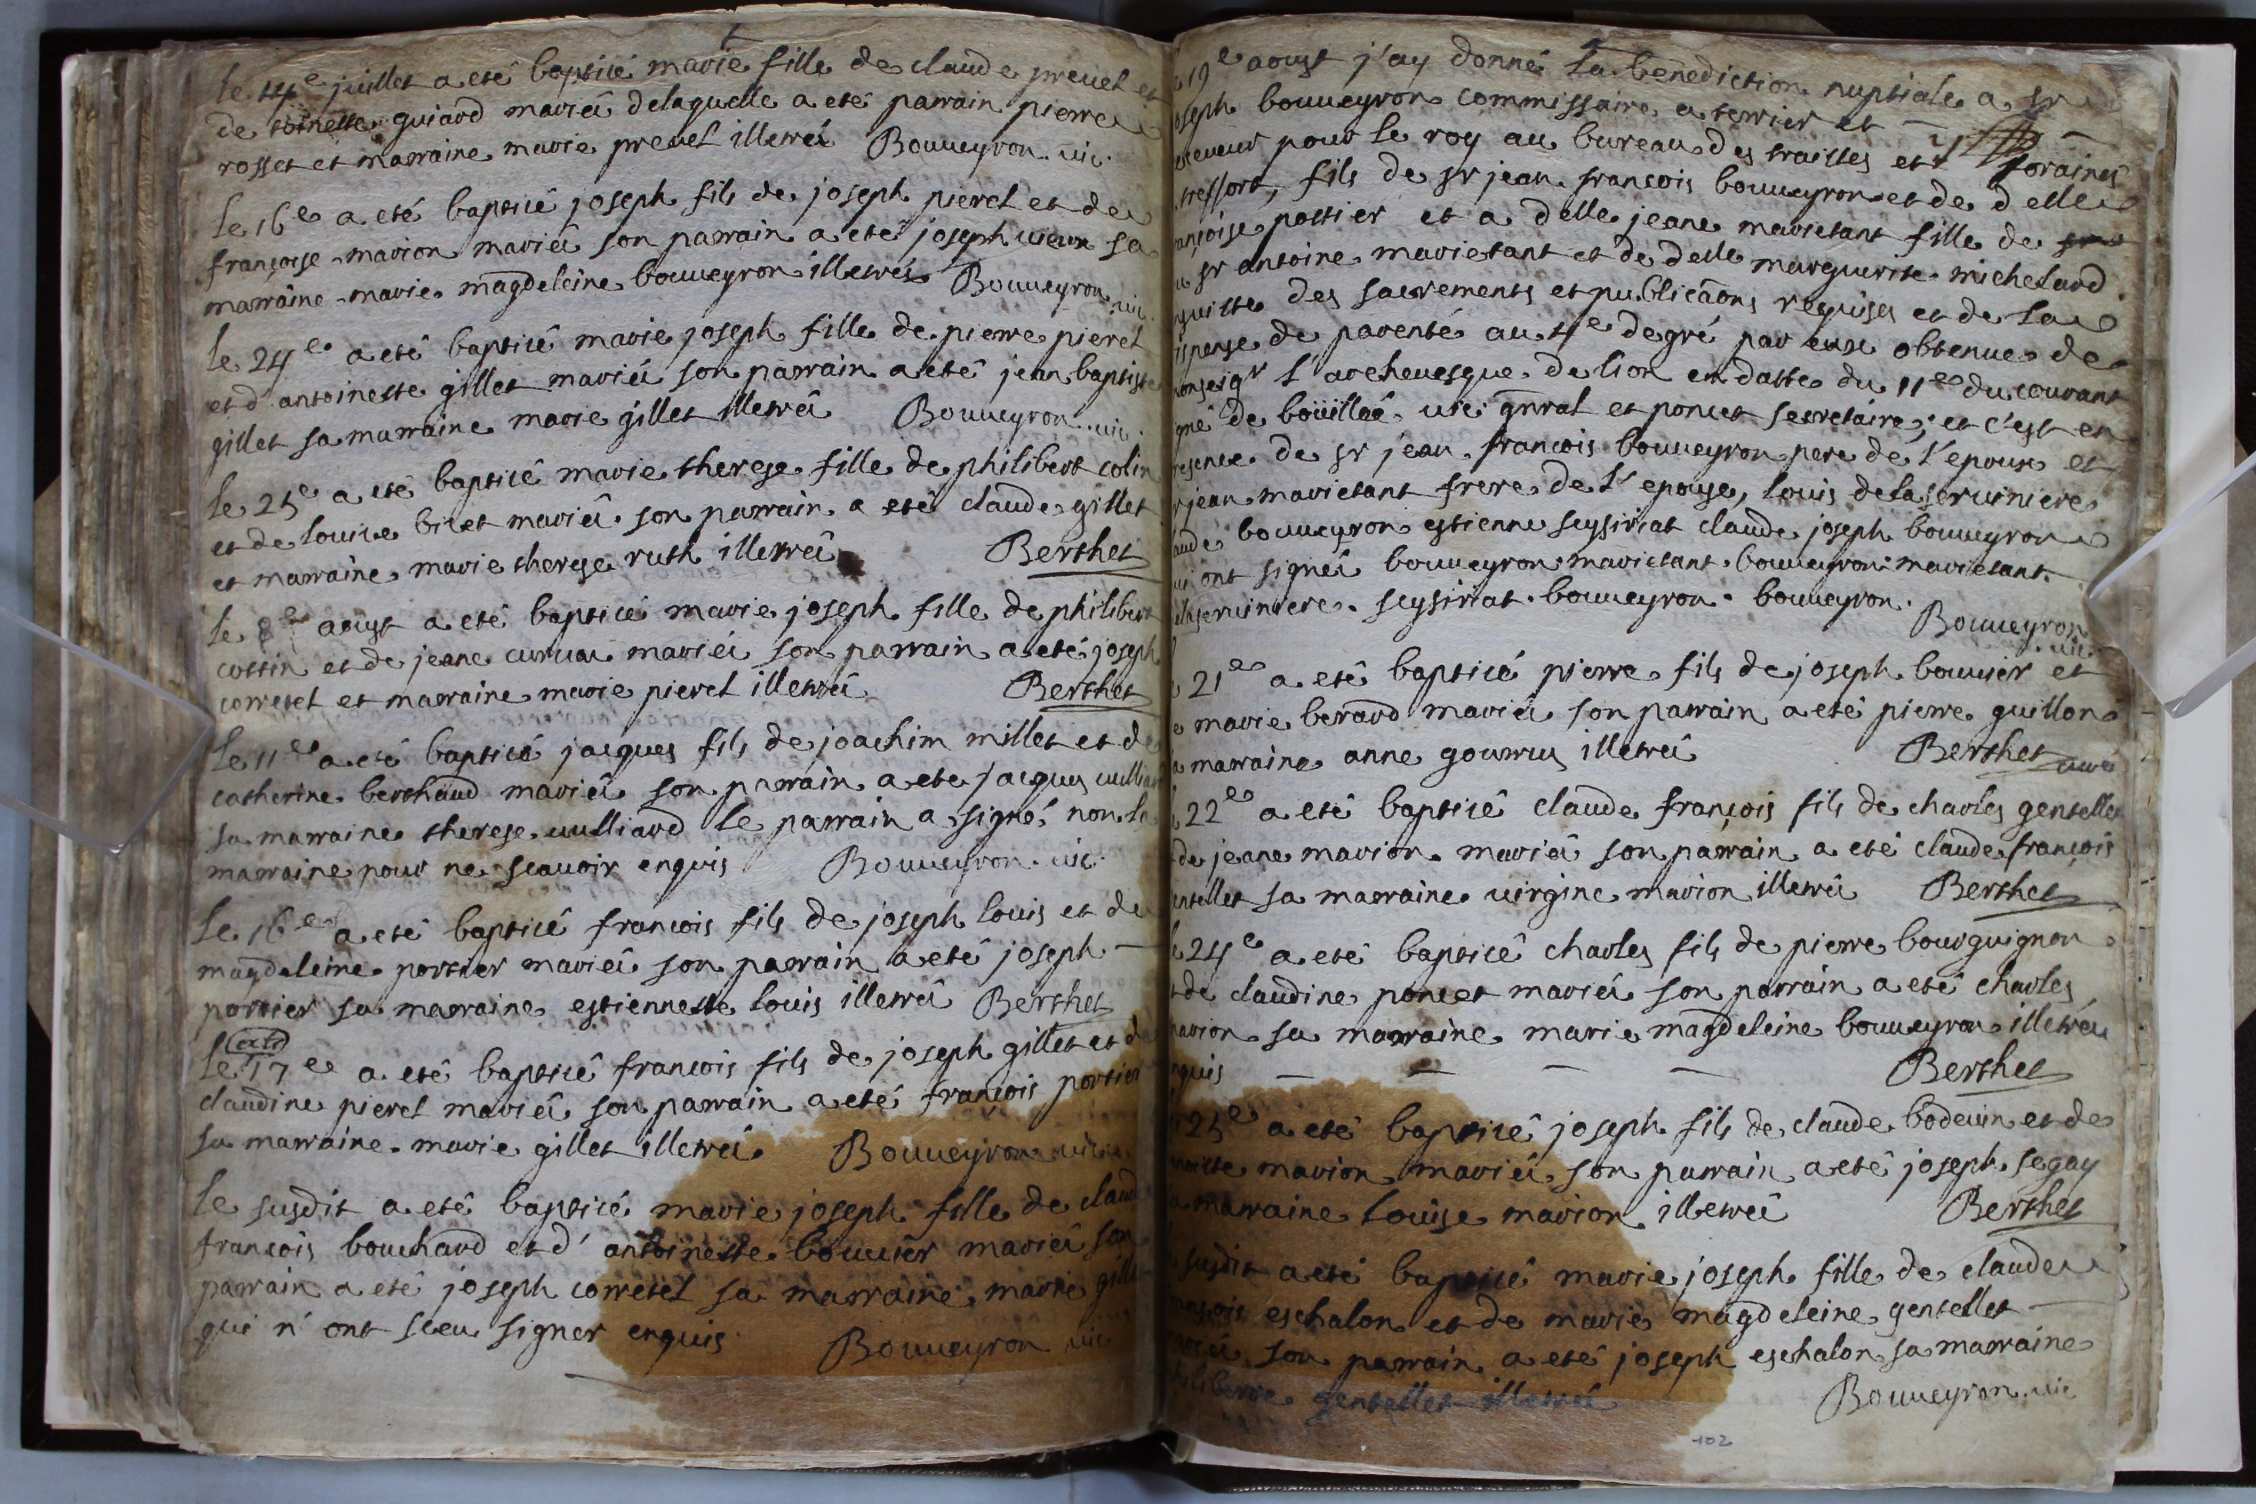 le 14e juillet a eté bapticé marie fille de claude prevel et
de toinette guiard mariéz delaquelle a eté parrain pierre
rosset et marraine marie prevel illetréz Bouveyron vic.
le 16e a eté bapticé joseph fils de joseph pierel et de
françoise marion mariéz son parrain a eté joseph vieux sa
marraine marie magdeleine bouveyron illetréz Bouveyron vic.
le 24e a eté bapticé marie joseph fille de pierre pierel
et d'antoinette gillet mariéz son parrain a eté jean baptiste
gillet sa marraine marie gillet illetréz Bouveyron vic.
le 25e a eté bapticé marie therese fille de philibert colin
et de louise mariéz son parrain a eté claude gillet
et marraine marie therese ruth illetréz Berthet
le 8e aoust a eté bapticé marie joseph fille de philibert
cottin et de jeane mariéz son parrain a eté joseph
corretel et marraine marie pierel illetréz Berthet
le 11e a eté bapticé jacques fils de joachim millet et de
catherine berthaud mariéz son parrain a ete jacques vulliard
sa marraine therese vulliard le parrain a signé non la
marraine pour ne scavoir enquis Bouveyron vic.
le 16e a eté bapticé françois fils de joseph louis et de
magdeleine portier mariéz son parrain a eté joseph
portier sa marraine estiennette louis illetréz Berthet
le 17e a eté bapticé francois fils de joseph gillet et de
claudine pierel mariéz son parrain a eté françois portier
sa marraine marie gillet illetréz Bouveyron vic.
le susdit a eté bapticé marie joseph fille de claude
françois bouchard et d'antoinette bouvier mariéz son
parrain a eté joseph corretel sa marraine marie gillet
qui n'ont sceu signer enquis Bouveyron vic
19e aoust j'ay donné la benediction nuptiale a sr
joseph bouveyron commissaire a terrier et
receveur pour le roy au bureau des traittes et foraines
treffort, fils de sr jean francois bouveyron et de delle
françoise pottier et a delle jeane marietant fille de
sr antoine marietant et de delle marguerite michelard
ensuitte des sacrements et publicãons requises et de la
dispense de parenté au 4e degré par eux obtenue de
monseigr l'archevesque de lion en datte du 11e du courant
signé de boüillé vic gnral et poncet secretaire; et c'est en
presence de sr jean francois bouveyron pere de l'epoux et
jean marietant frere de l'epouse, louis delaserviniere
claude bouveyron estienne seysiriat claude joseph bouveyron
qui ont signéz bouveyron marietant bouveyron marietant
delaserviniere. seysiriat. bouveyron. bouveyron.
Bouveyron vic.
21e a eté bapticé pierre fils de joseph bouvier et
marie berard mariéz son parrain a eté pierre guillon
marraine anne illetréz Berthet curé
22e a eté bapticé claude françois fils de charles gentellet
de jeane marion mariéz son parrain a eté claude françois
gentellet sa marraine virgine marion illetréz Berthet
24e a eté bapticé charles fils de pierre bourguignon
de claudine poncet mariéz son parrain a eté charles
marion sa marraine marie magdeleine bouveyron illetréz
enquis Berthet
25e a eté bapticé joseph fils de claude bodevin et de
marion mariéz son parrain a eté joseph segay
marraine louise marion illetréz Berthet
susdit a eté bapticé marie joseph fille de claude
françois eschalon et de marie magdeleine gentellet
mariéz son parrain a eté joseph eschalon sa marraine
philiberte gentellet illetréz Bouveyron vic
102